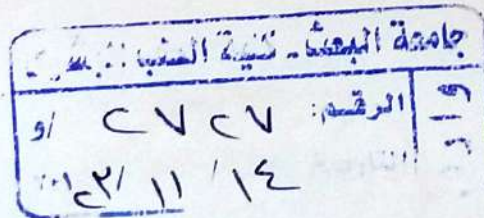 جامعة البعث - كلية الطب البشري
الرقم: ٢٧٢٧ /و
١٤ / ١١ / ٢٠٢٣